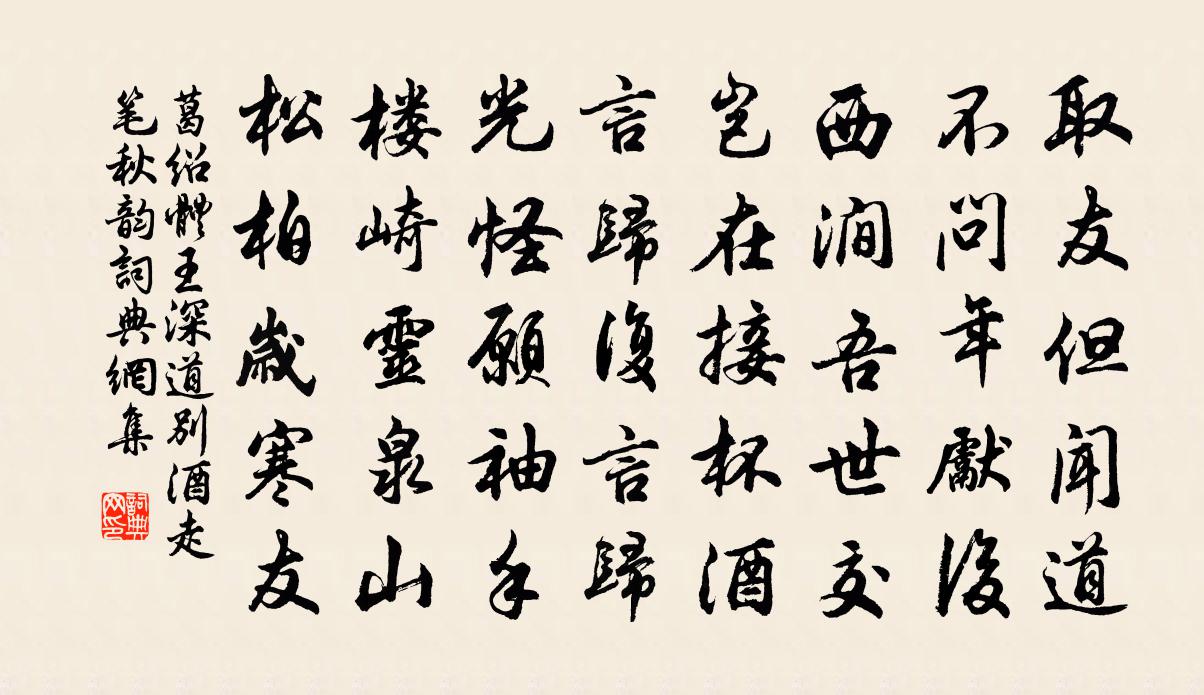 取友但闻道
不问年獻後
西涧吾世交
岂在接杯酒
言歸復言歸
光怪願袖手
楼崎靈泉山
松柏歲寒友
葛绍體王深道别酒走
笔秋韵詞典網集
詞典網印